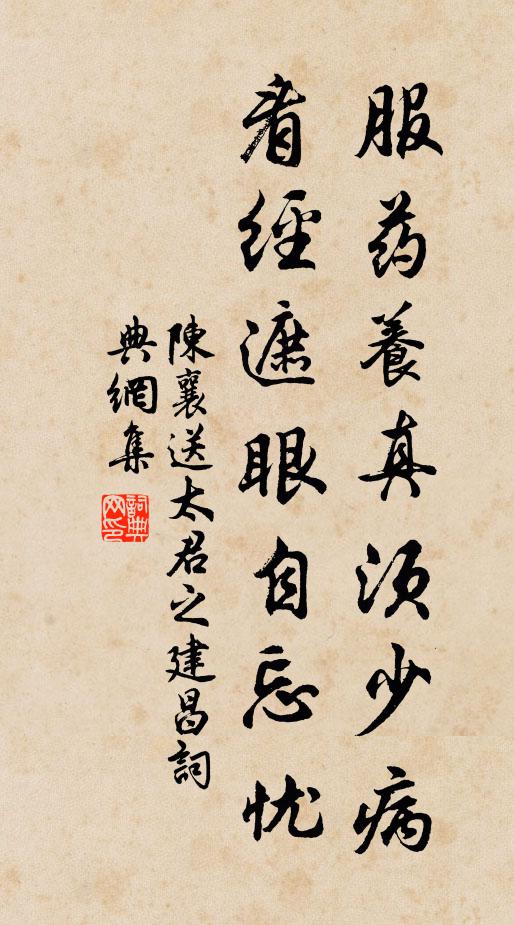 服药養真須少病
看經遮眼自忘忧
陳襄送太君之建昌詞
典網集
詞典網印